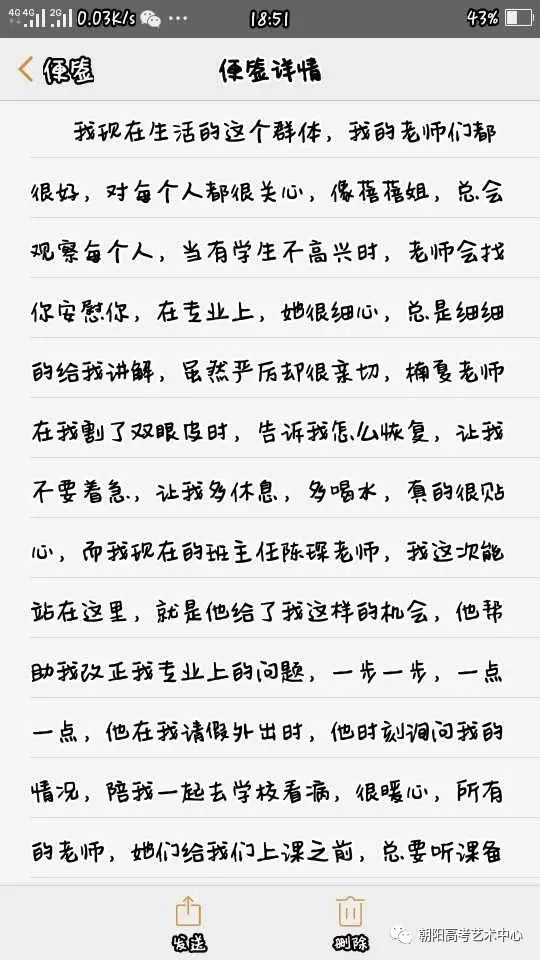 4G 4G 2G 0.03K/s 18:51 43%
便签 便签详情
我现在生活的这个群体，我的老师们都
很好，对每个人都很关心，像蓓蓓姐，总会
观察每个人，当有学生不高兴时，老师会找
你安慰你，在专业上，她很细心，总是细细
的给我讲解，虽然严厉却很亲切，楠夏老师
在我割了双眼皮时，告诉我怎么恢复，让我
不要着急，让我多休息，多喝水，真的很贴
心，而我现在的班主任陈琛老师，我这次能
站在这里，就是他给了我这样的机会，他帮
助我改正我专业上的问题，一步一步，一点
一点，他在我请假外出时，他时刻询问我的
情况，陪我一起去学校看病，很暖心，所有
的老师，她们给我们上课之前，总要听课备
发送 删除
朝阳高考艺术中心